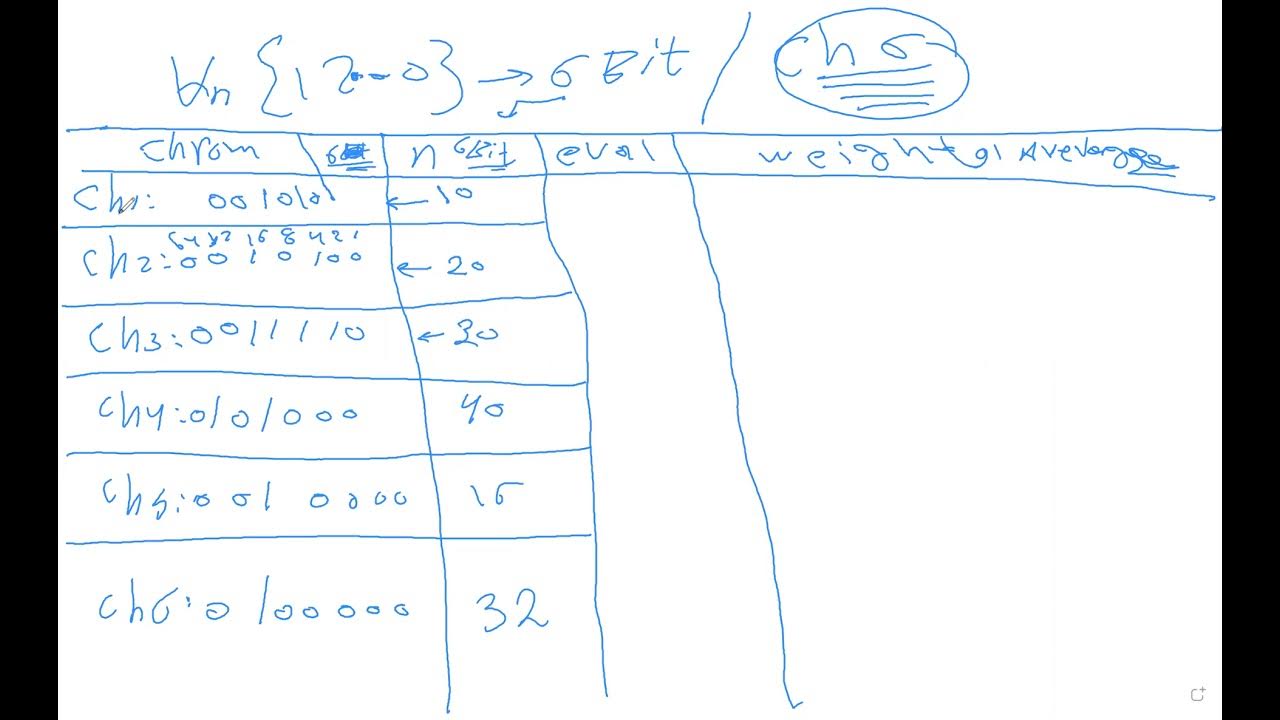 ∀n {12--0} → 6 Bit / Ch 6
Chrom 6Bit n 6Bit eval weightal Average
Ch1: 001010 ← 10
64 32 16 8 4 2 1
Ch2: 0010100 ← 20
Ch3: 0011110 ← 30
Ch4: 0101000 40
Ch5: 0010000 16
Ch6: 0100000 32